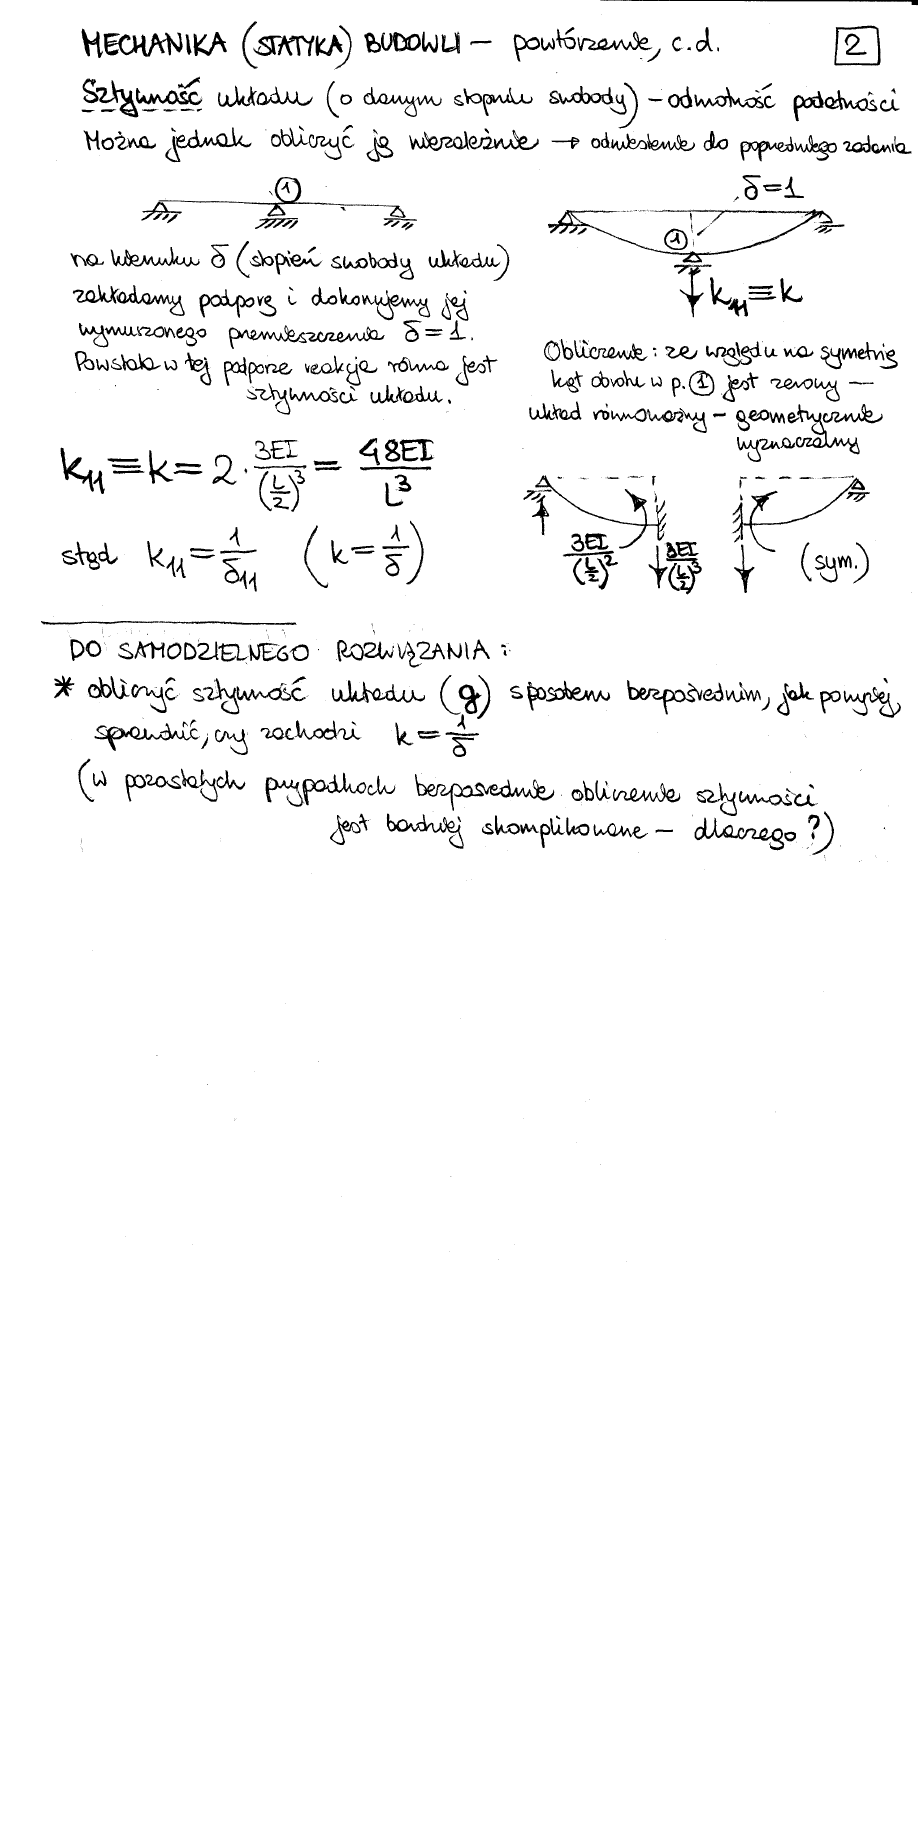 MECHANIKA (STATYKA) BUDOWLI – powtórzenie, c.d.
2
Sztywność układu (o danym stopniu swobody) – odwrotność podatności
Można jednak obliczyć ją niezależnie → odniesienie do poprzedniego zadania
1
δ=1
1
k₁₁≡k
na kierunku δ (stopień swobody układu)
zakładamy podporę i dokonujemy jej
wymuszonego przemieszczenia δ=1.
Powstała w tej podporze reakcja równa jest
sztywności układu.
Obliczenie: ze względu na symetrię
kąt obrotu w p. 1 jest zerowy –
układ równoważny – geometrycznie
wyznaczalny
k₁₁≡k=2·3EI/(L/2)³=48EI/L³
stąd k₁₁=1/δ₁₁ (k=1/δ)
3EI/(L/2)²
3EI/(L/2)³
(sym.)
DO SAMODZIELNEGO ROZWIĄZANIA:
* obliczyć sztywność układu (g) sposobem bezpośrednim, jak powyżej,
sprawdzić, czy zachodzi k=1/δ
(w pozostałych przypadkach bezpośrednie obliczenie sztywności
jest bardziej skomplikowane – dlaczego?)